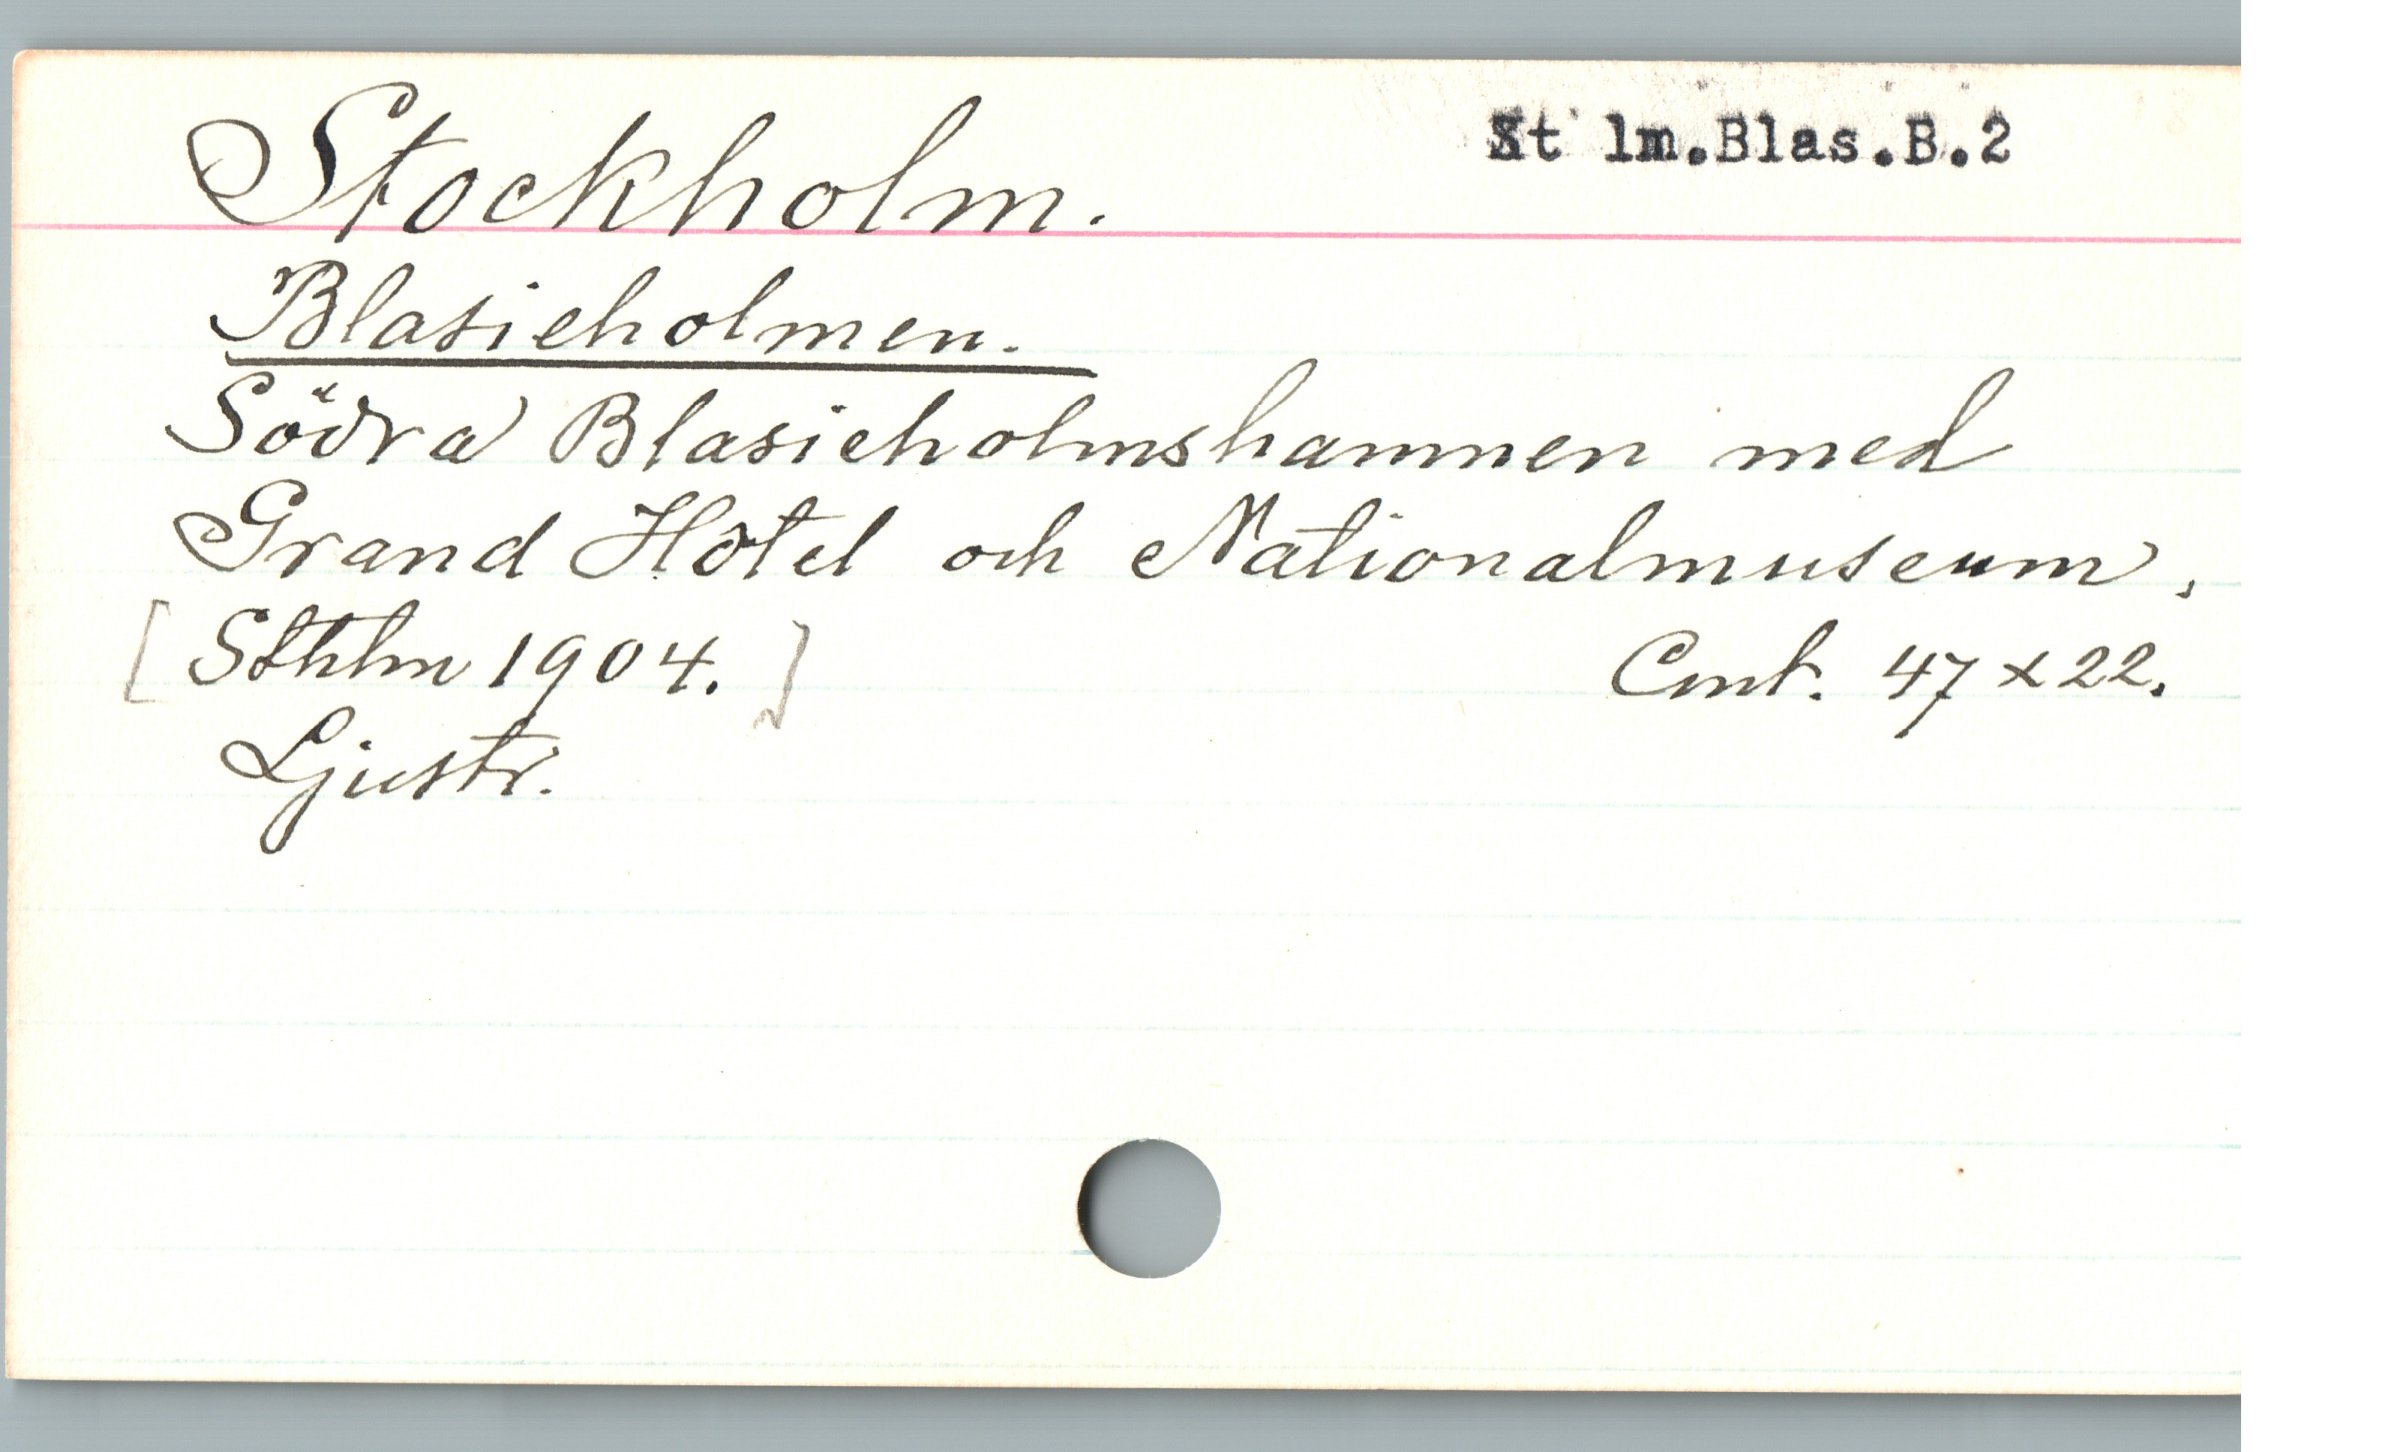 Stockholm.
St lm.Blas.B.2
Blasieholmen.
Södra Blasieholmshamnen med
Grand Hôtel och Nationalmuseum,
[Sthlm 1904.] Cmt. 47 x 22.
Ljustr.